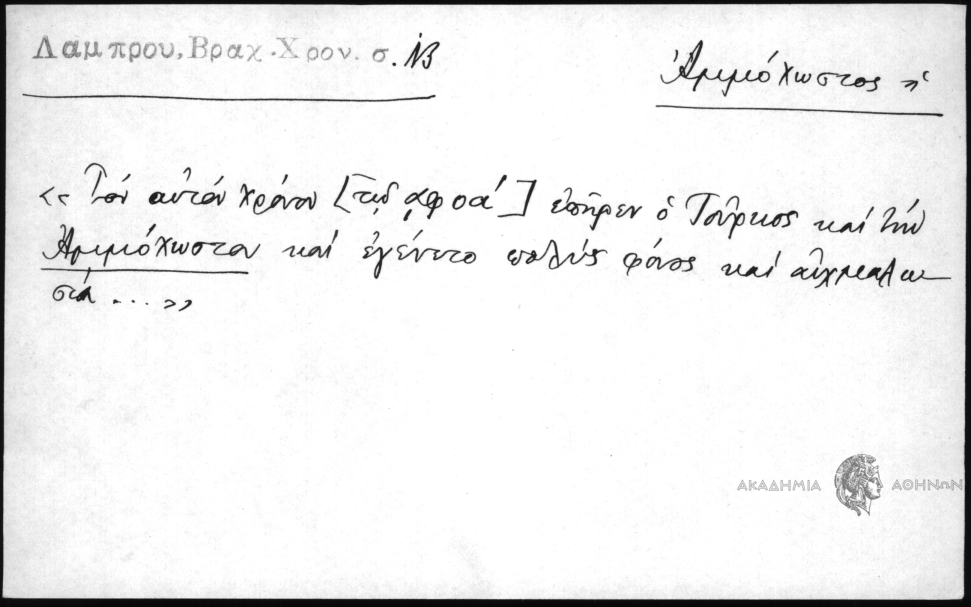 Λαμπρου, Βραχ. Χρον. σ. 13
Ἀμμόχωστος ἡ
«Τὸν αὐτὸν χρόνον [τοῦ ͵αφοα΄] ἐπῆρεν ὁ Τοῦρκος καὶ τὴν
Ἀμμόχωστον καὶ ἐγένετο πολὺς φόνος καὶ αἰχμαλω-
σιὰ ...»
ΑΚΑΔΗΜΙΑ ΑΘΗΝΩΝ